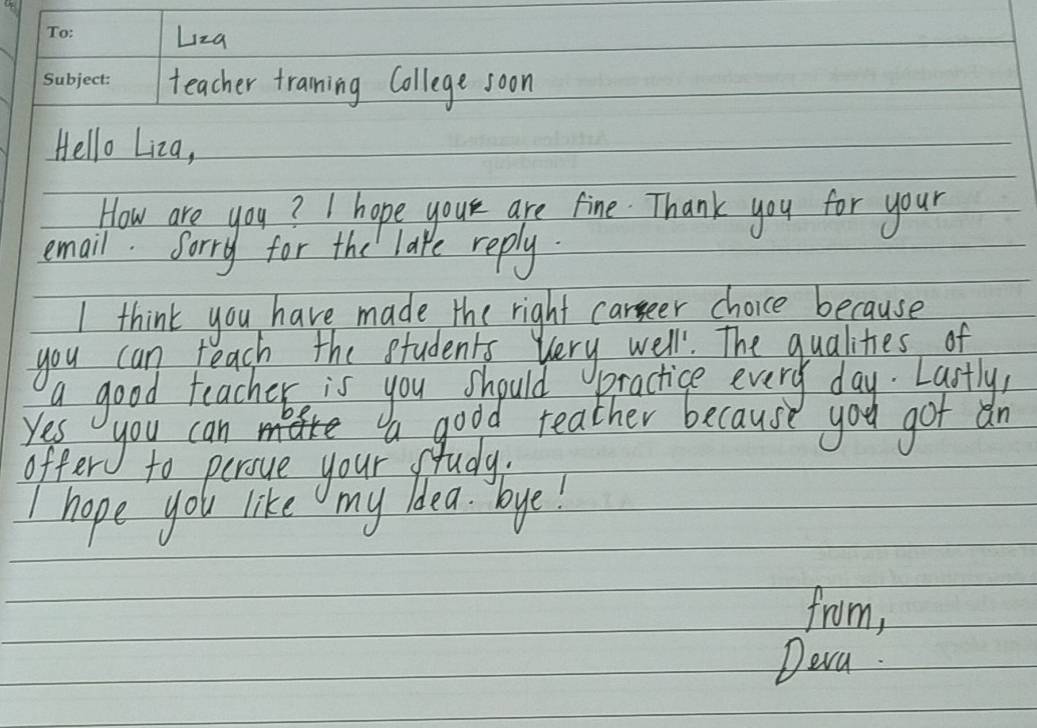 To: Liza
Subject: teacher training College soon
Hello Liza,
How are you? I hope you are fine. Thank you for your
email. Sorry for the late reply.
I think you have made the right career choice because
you can teach the students very well. The qualities of
a good teacher is you should practice every day. Lastly,
Yes you can be a good teacher because you got an
offer to persue your study.
I hope you like my idea. bye!
from,
Deva.